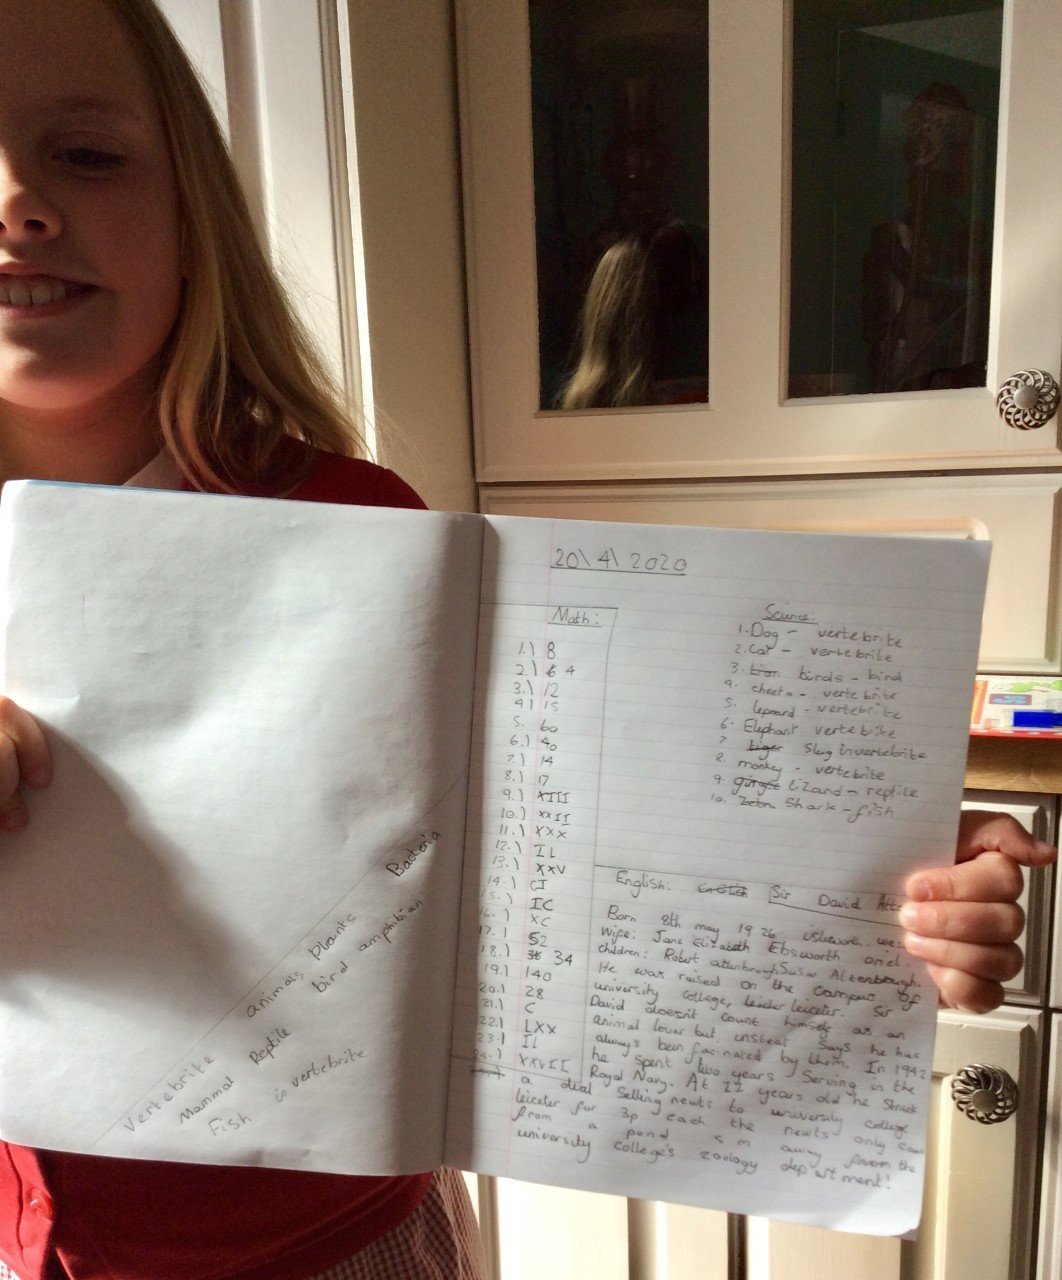 Vertebrite animals plants Bacteria
Mammal Reptile bird amphibian
Fish is vertebrite
20\4\2020
Math:
1.) 8
2.) 6 4
3.) 12
4) 15
5. 60
6.) 40
7.) 14
8.) 17
9.) XIII
10.) XXII
11.) XXX
12.) IL
13.) XXV
14.) CI
15.) IC
16.) XC
17.) 52
18.) 36 34
19.) 140
20.) 28
21.) C
22.) LXX
23.) IL
24.) XXVII
Science:
1. Dog - vertebrite
2. Cat - vertebrite
3. Lion birds - bird
4. cheeta - vertebrite
5. lepoard - vertebrite
6. Elephant vertebrite
7. tiger Slug invertebrite
8. monkey - vertebrite
9. Lizard - reptile
10. Zebra Shark - fish
English: English Sir David Atte
Born 8th may 1926
Wife: Jane Elizabeth Ebsworth oriel
children: Robert attenbrough Susan Attenbrough.
He was raised on the campus of
university college, leicter leicester. Sir
David doesn't count himself as an
animal lover but unstead says he has
always been facinated by them. In 1942
he spent two years Serving in the
Royal Navy. At 11 years old he struck
a deal Selling newts to university college
leicter for 3p each the newts only came
from a pond 5 m away from the
university college's zoology department!